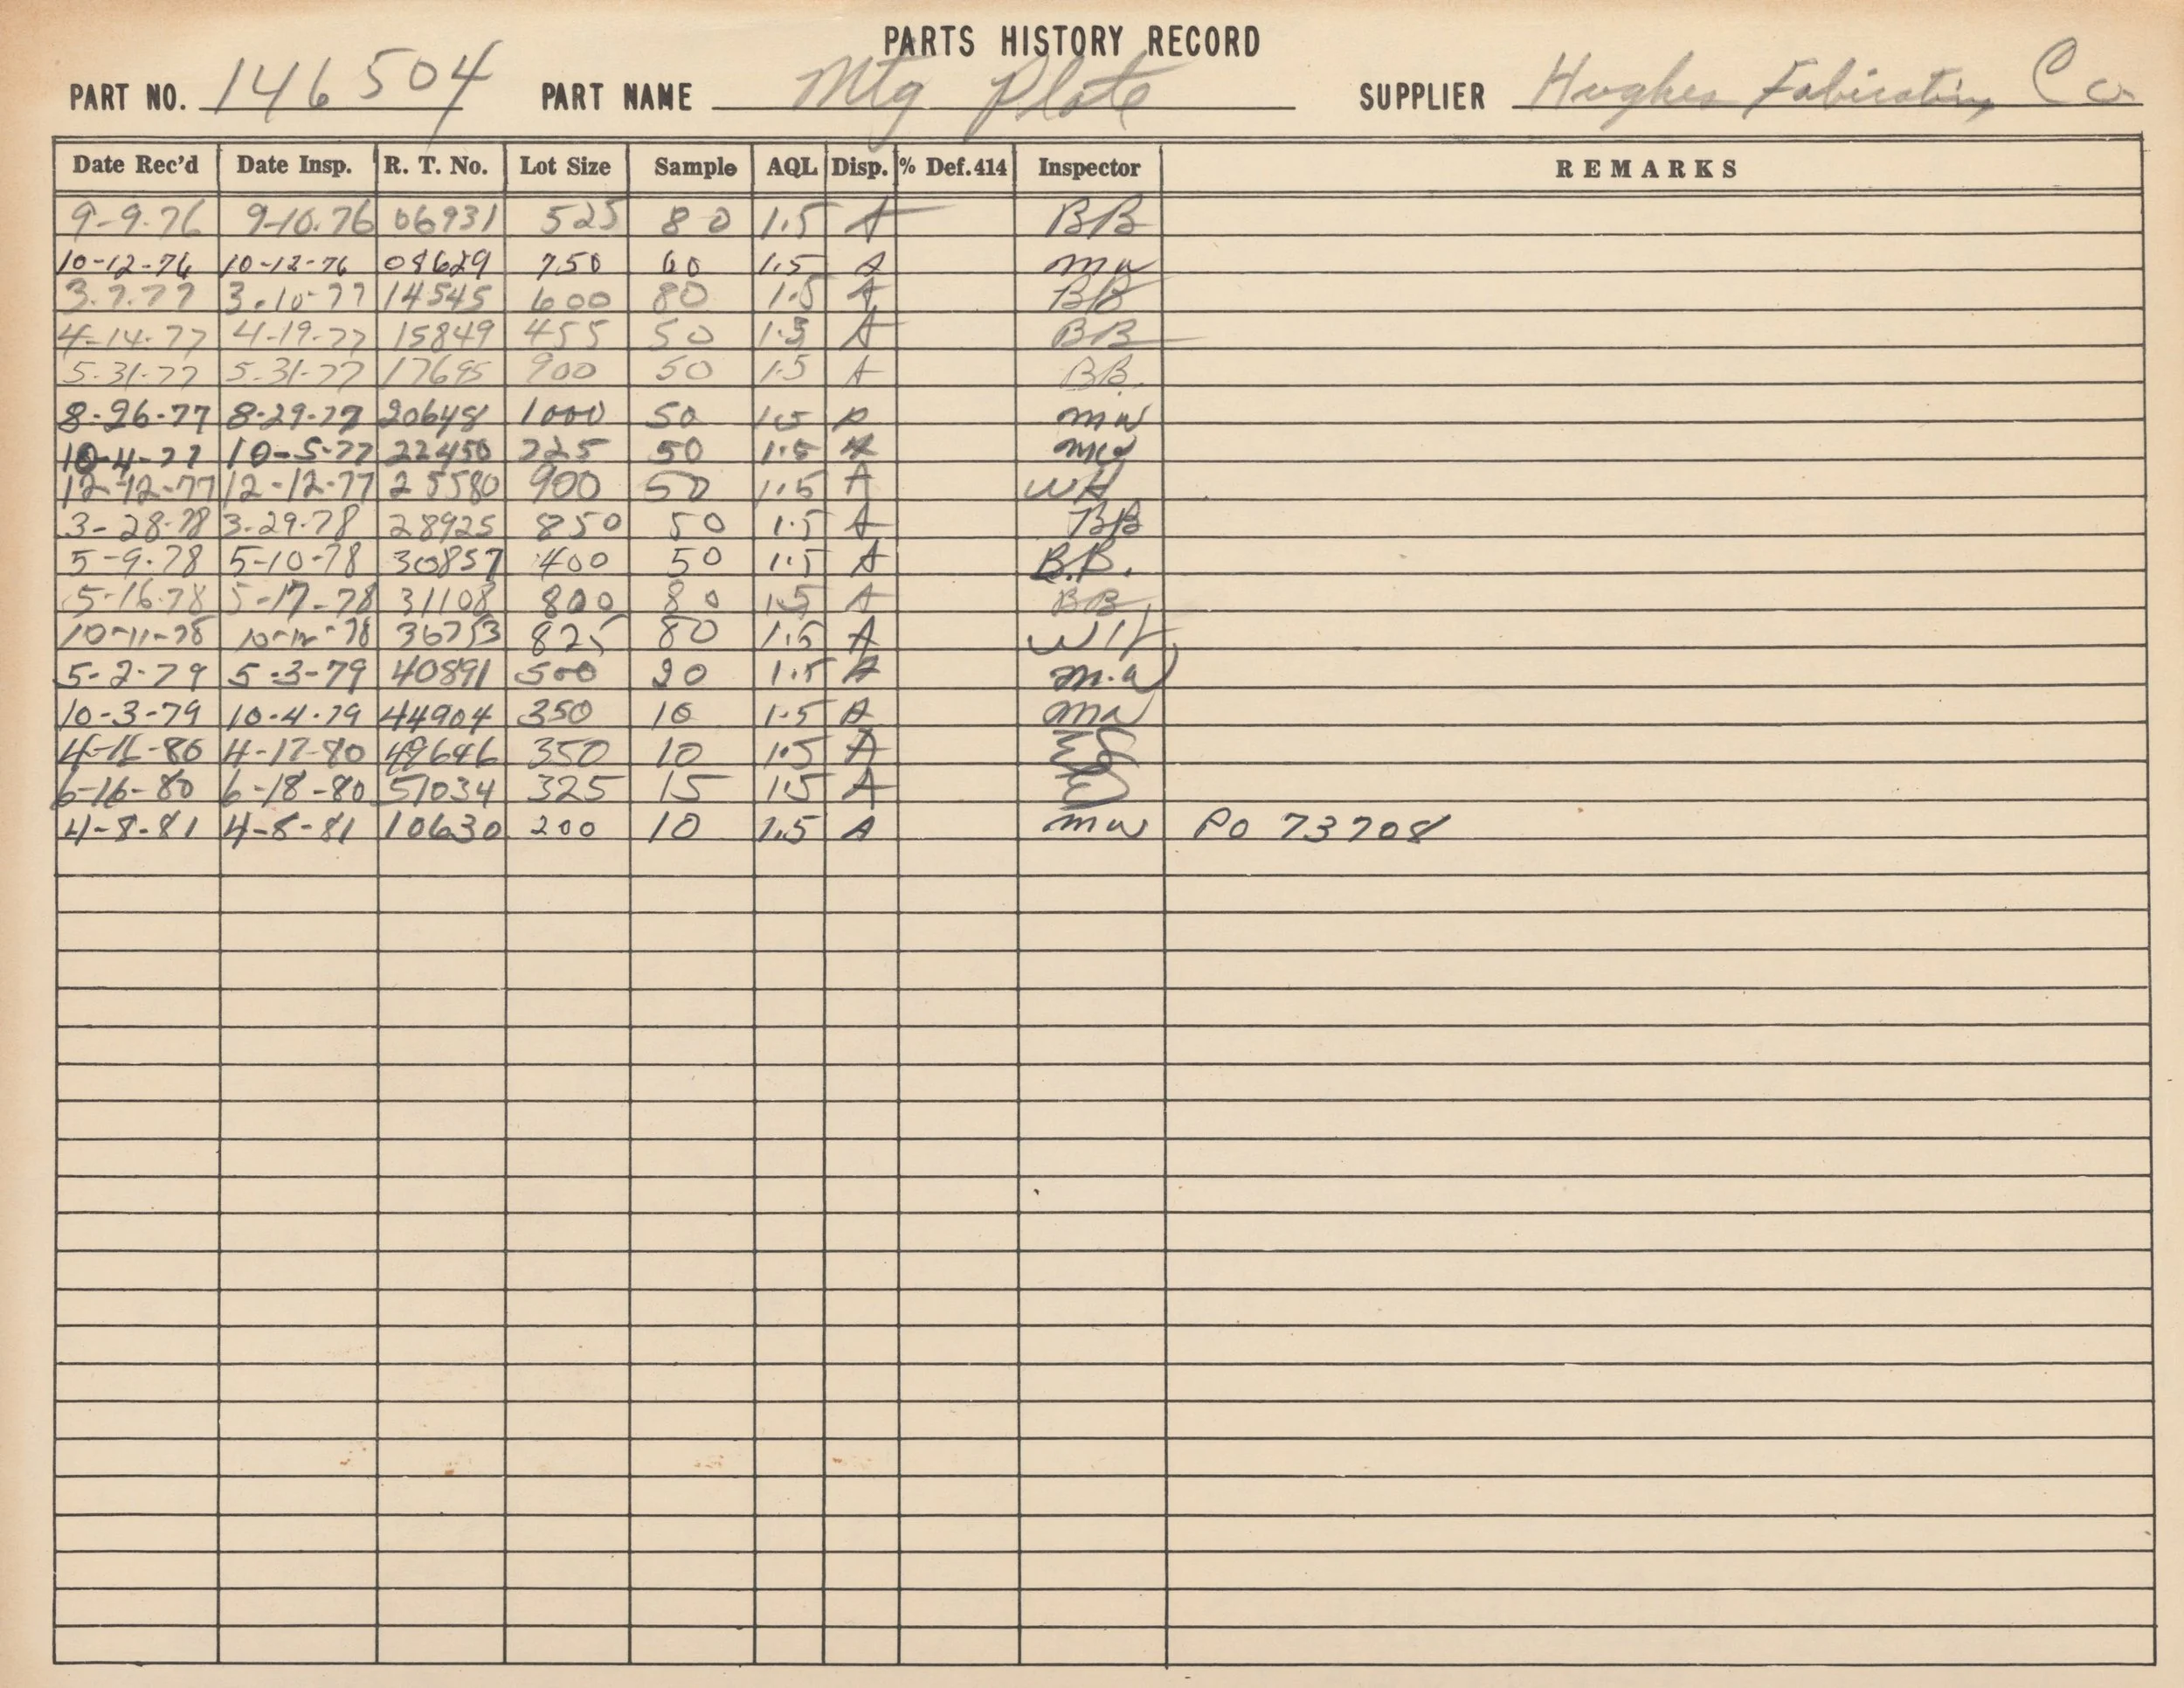 PARTS HISTORY RECORD
PART NO. 146504 PART NAME Mtg Plate SUPPLIER Hughes Fabricating Co
Date Rec'd Date Insp. R. T. No. Lot Size Sample AQL Disp. % Def.414 Inspector REMARKS
9-9-76 9-10-76 06931 525 80 1.5 A BB
10-12-76 10-12-76 08629 750 60 1.5 A MW
3.7.77 3-10-77 14545 600 80 1.5 A BB
4-14-77 4-19-77 15849 455 50 A BB
5-31-77 5-31-77 17695 900 50 1.5 A BB.
8-26-77 8-29-77 20648 1000 50 1.5 A MW
10-4-77 10-5-77 22450 50 1.5 A MW
12-12-77 12-12-77 25580 900 50 1.5 A WH
3-28-78 3-29-78 28925 850 50 1.5 A BB
5-9-78 5-10-78 30857 400 50 1.5 A B.B.
5-16-78 5-17-78 31108 800 80 1.5 A BB
10-11-78 10-12-78 36753 825 80 1.5 A WH
5-2-79 5-3-79 40891 500 20 1.5 A M.W
10-3-79 10-4-79 44904 350 10 1.5 A MW
4-16-80 4-17-80 49646 350 10 1.5 A
6-16-80 6-18-80 51034 325 15 1.5 A
4-8-81 4-8-81 10630 200 10 1.5 A MW PO 73708